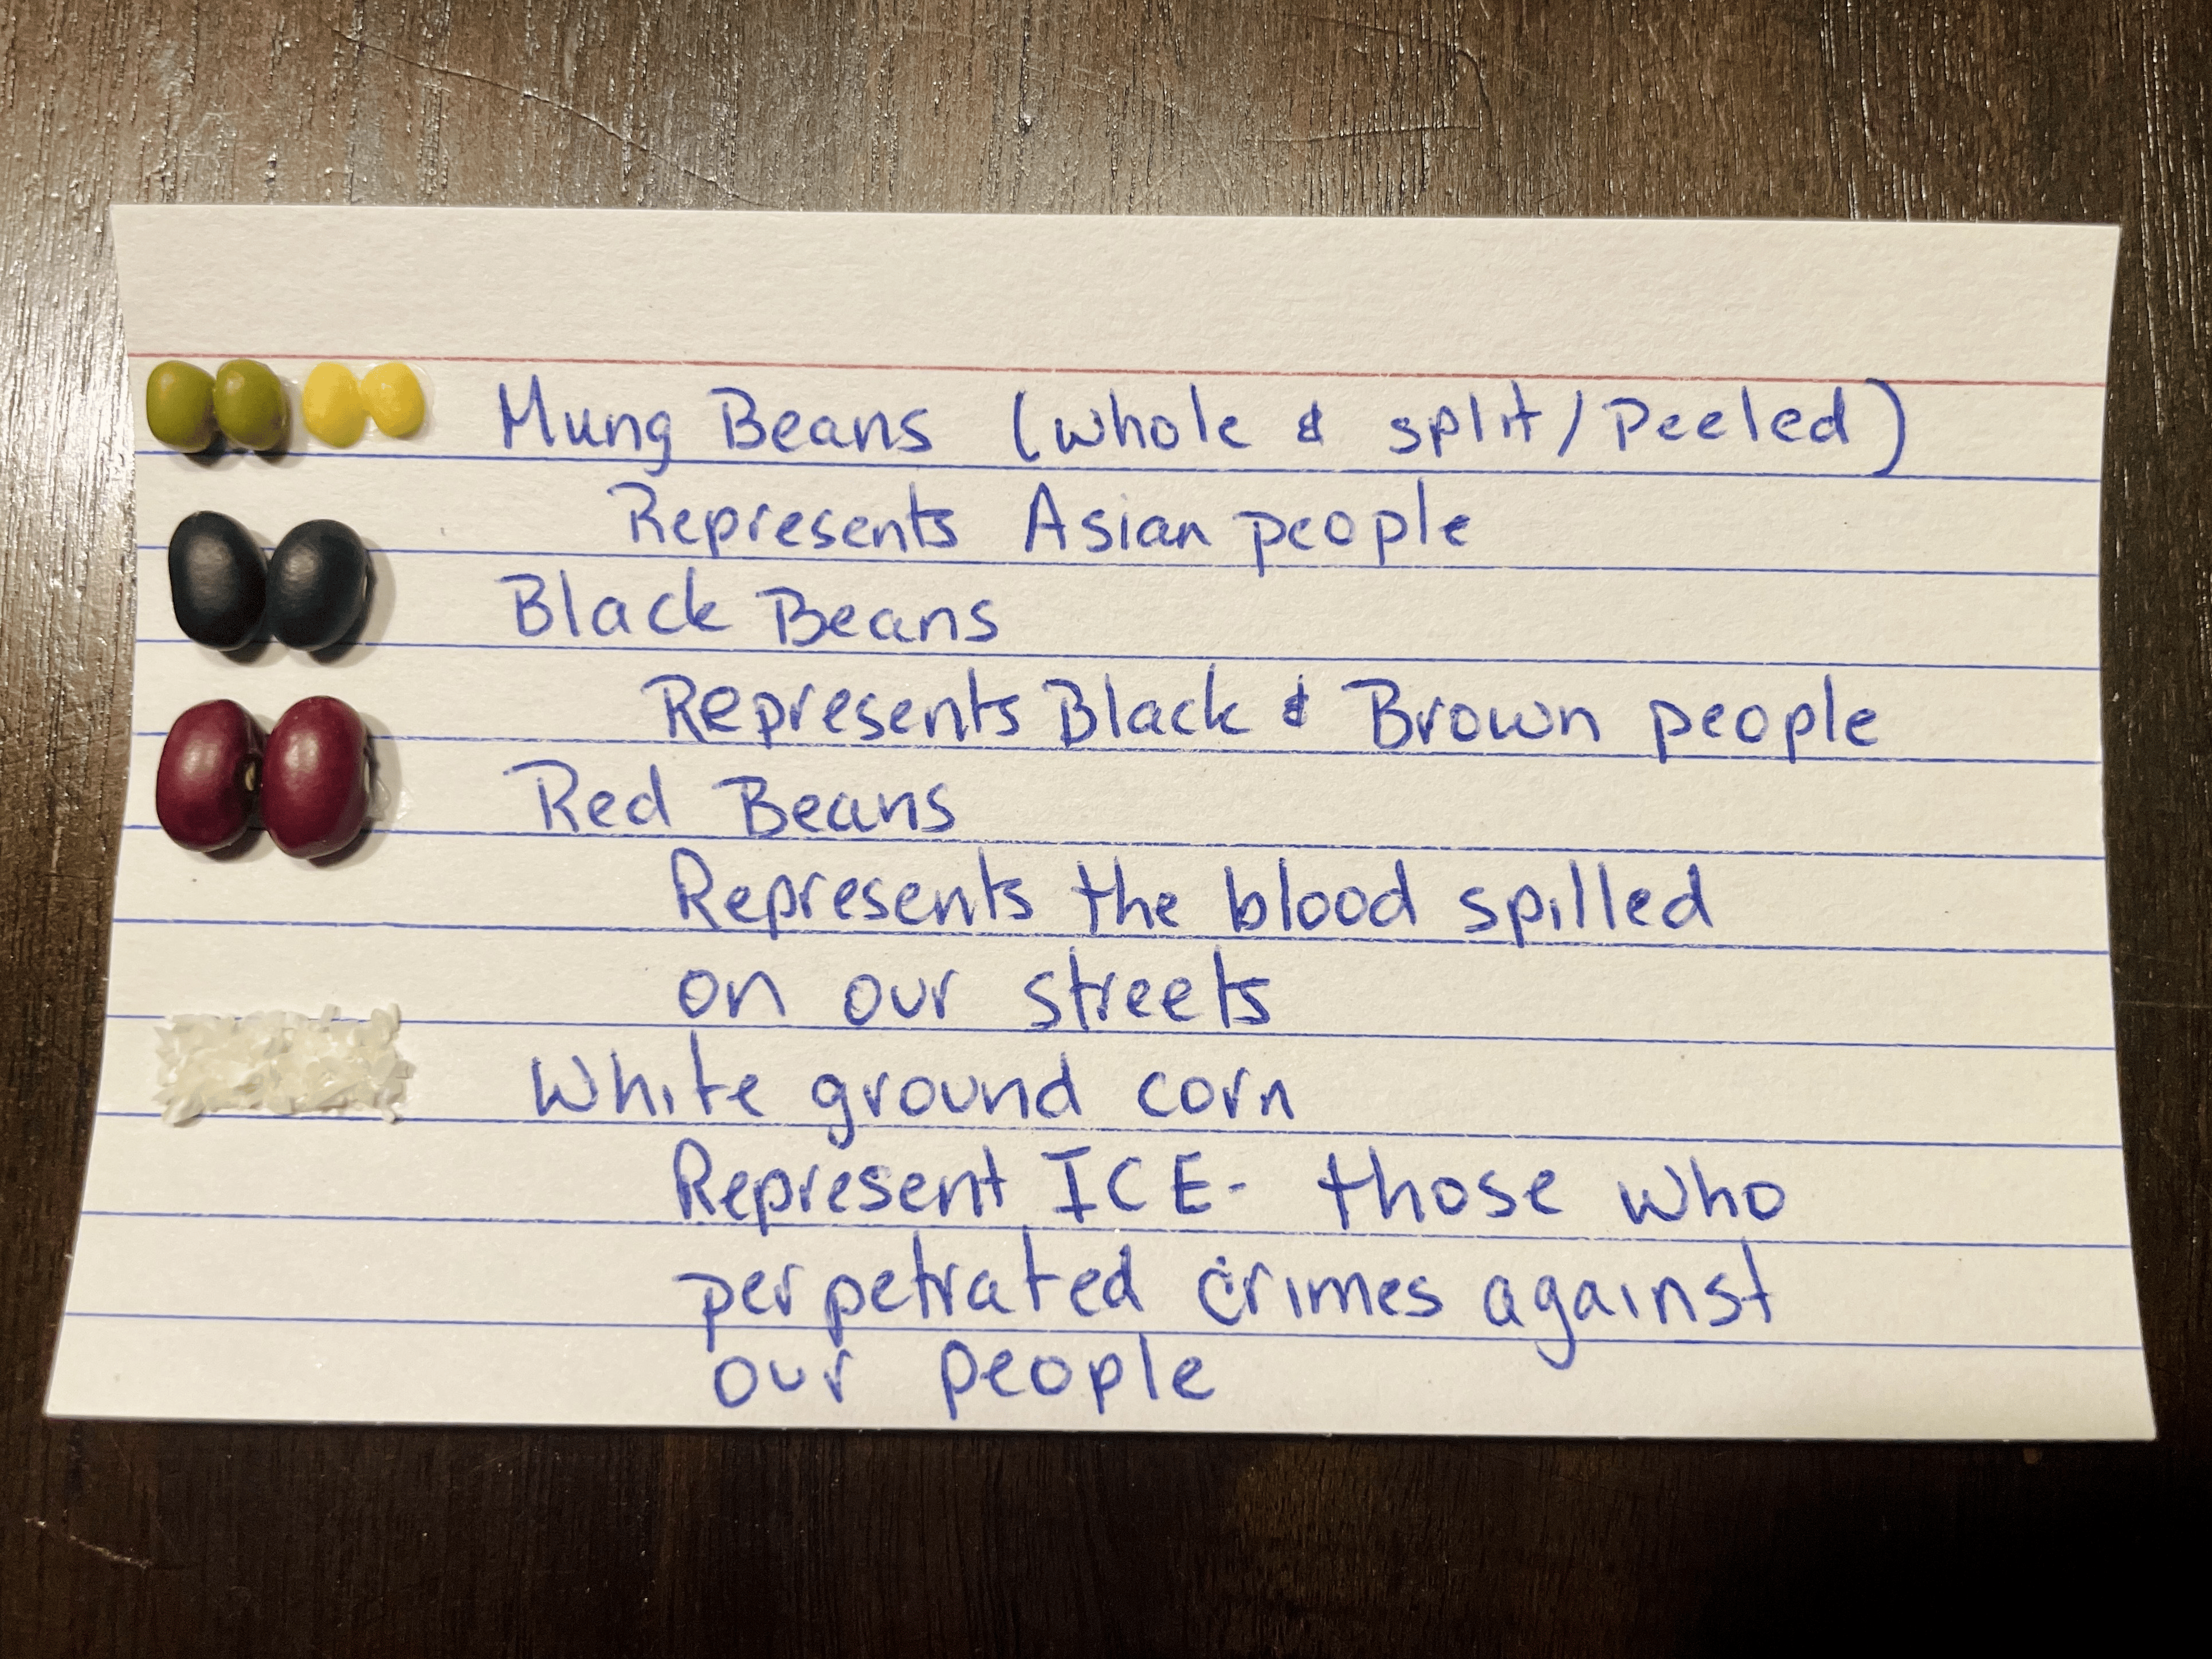 Mung Beans (whole & split/Peeled)
Represents Asian people
Black Beans
Represents Black & Brown people
Red Beans
Represents the blood spilled
on our streets
White ground corn
Represent ICE- those who
perpetrated crimes against
our people